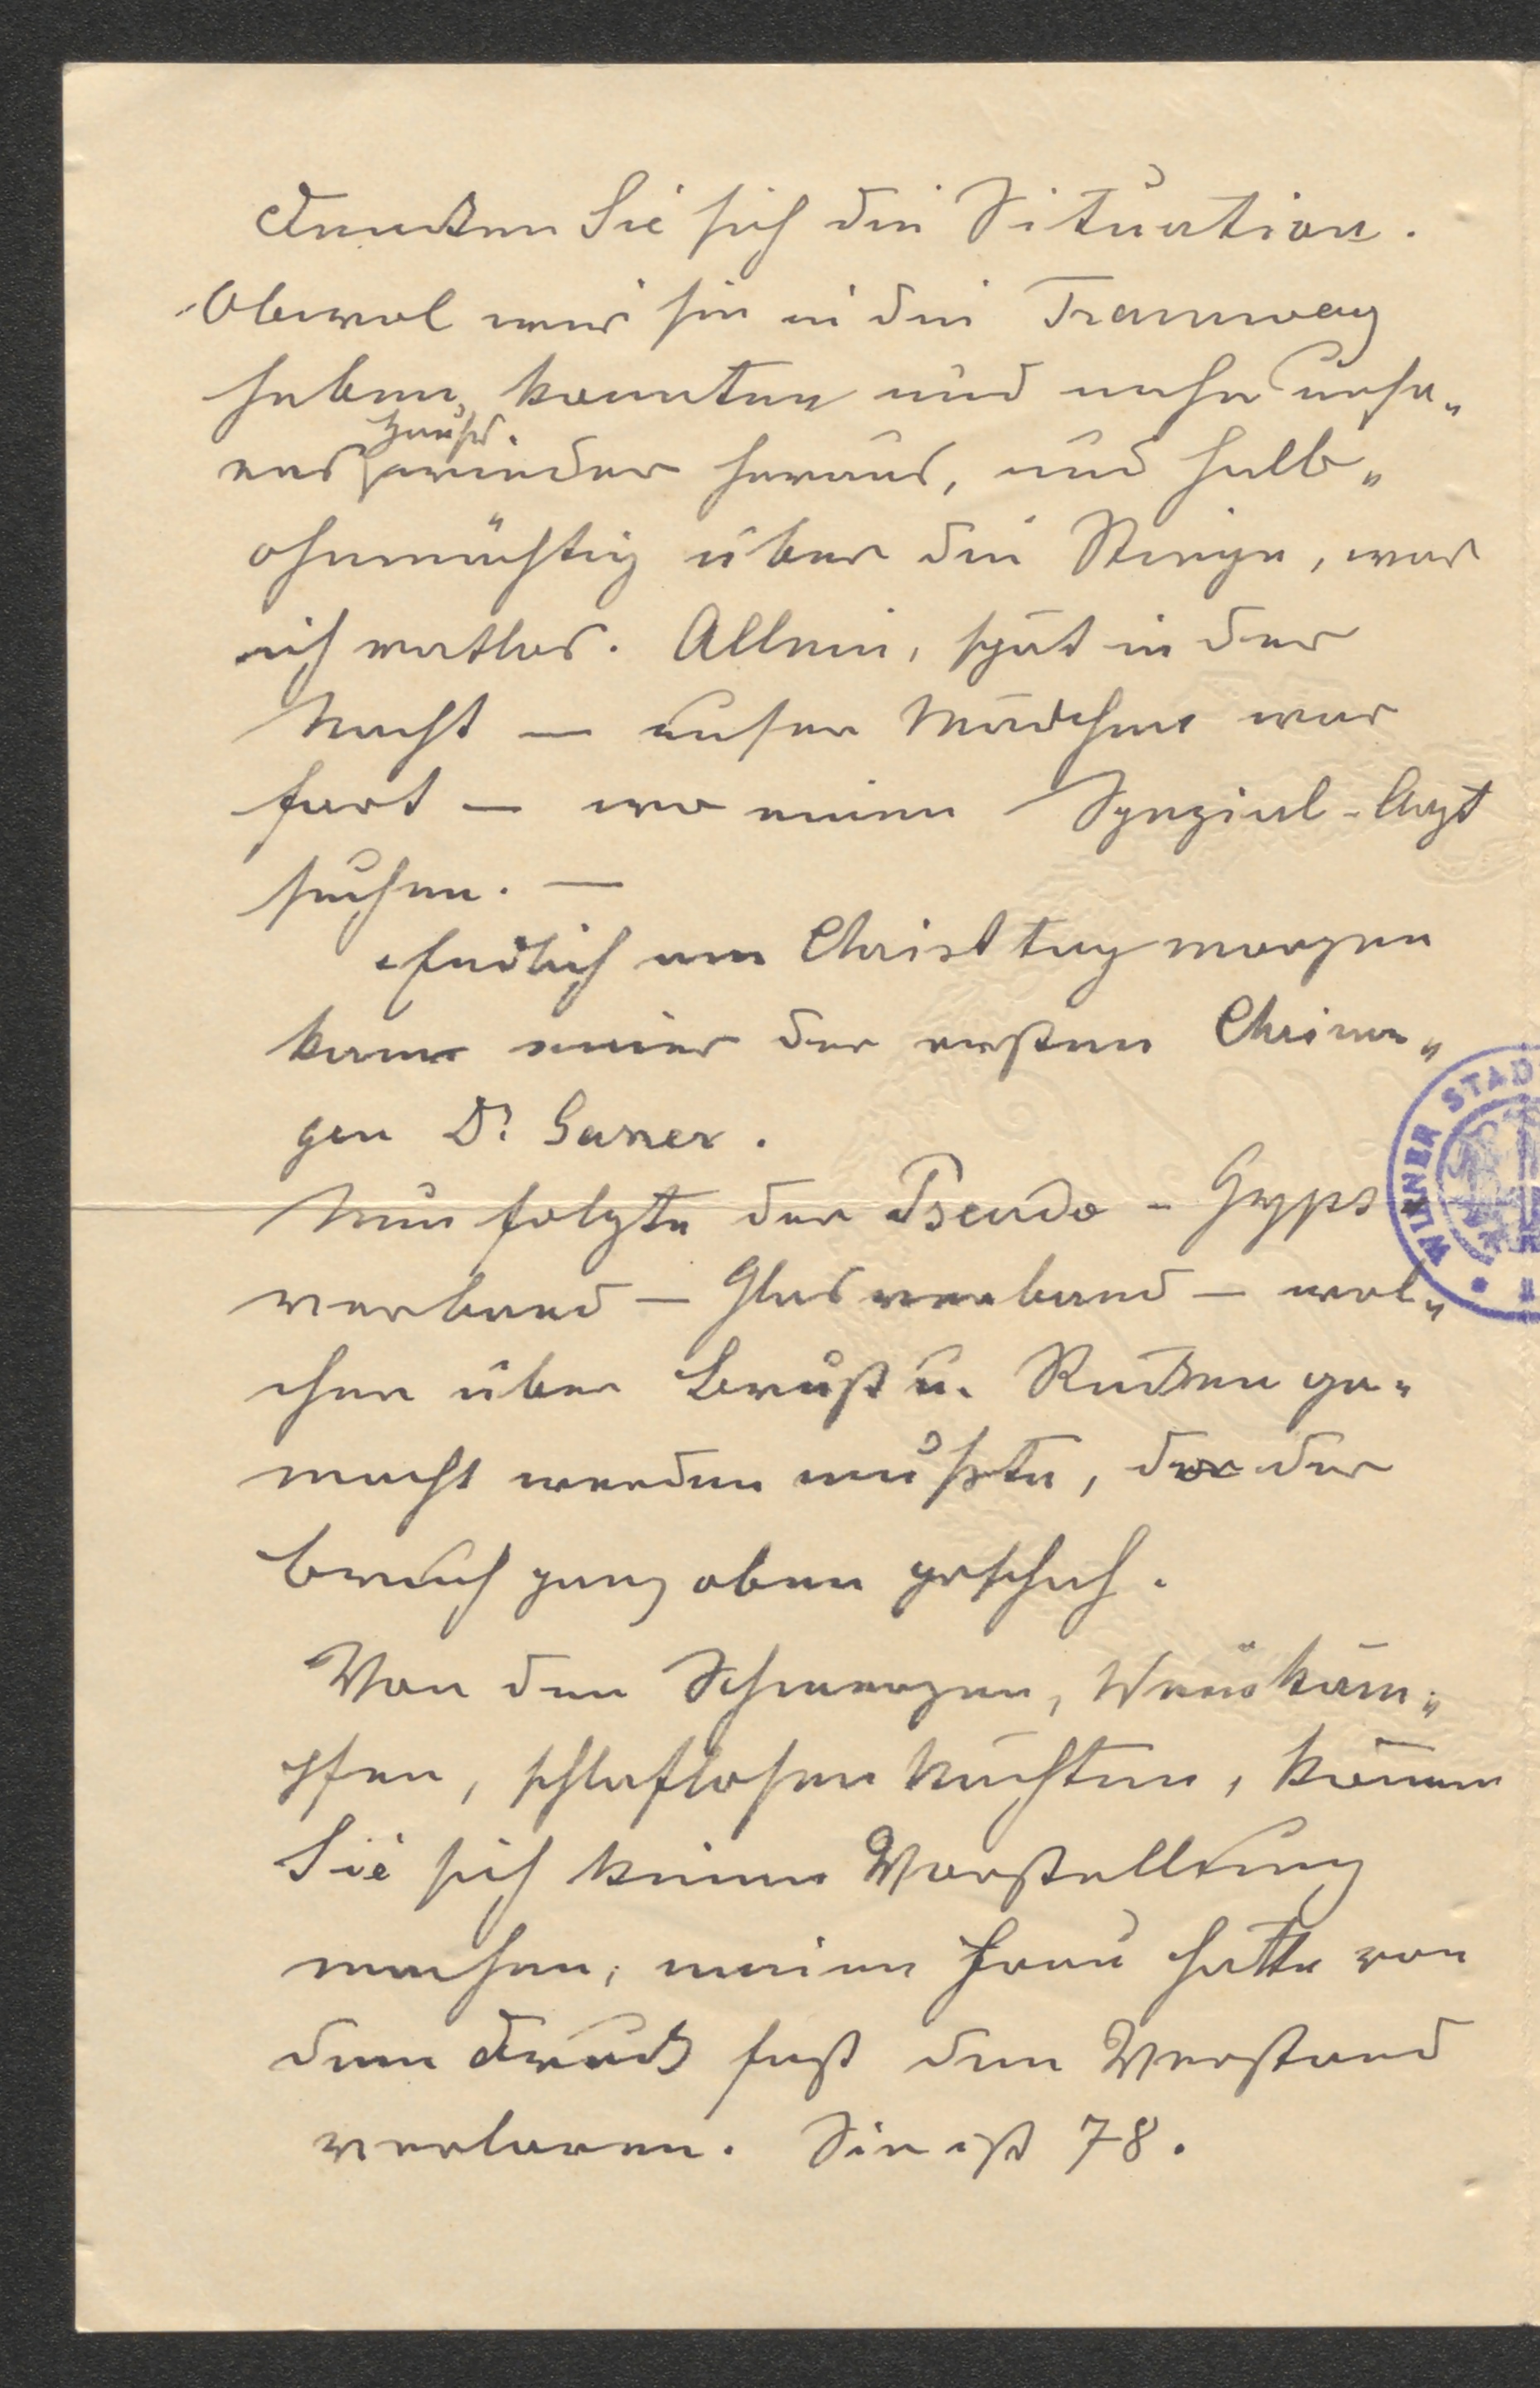 Denken Sie sich die Situation.
Obwol wir sie in die Tramway
heben konnten und nahe unse-
res Hauses wieder heraus, und halb-
ohnmächtig über die Stiege, war
ich ratlos. Allein, spät in der
Nacht — unser Mädchen war
fort — wo einen Spezial-Arzt
suchen. —
Endlich am Christtag morgen
kam einer der ersten Chirur-
gen Dr.
Nun folgte der Pseudo-Gyps-
verband — Glasverband — wel-
cher über Brust u. Rücken ge-
macht werden mußte, da der
Bruch ganz oben geschah.
Von den Schmerzen,
schlaflosen Nächten, können
Sie sich keinen Vorstellung
machen, meine Frau hatte von
dem Druck fast den Verstand
verloren. Sie ist 78.
WIENER STAD